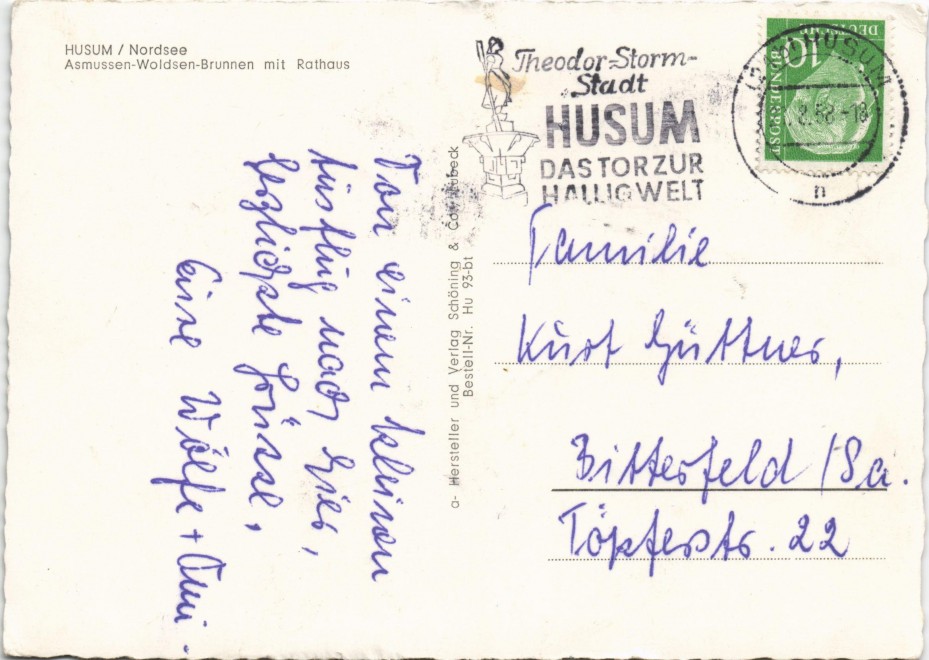 HUSUM / Nordsee
Asmussen-Woldsen-Brunnen mit Rathaus
Theodor-Storm-
Stadt
HUSUM
DAS TOR ZUR
HALLIGWELT
HUSUM
2.58-18
n
DEUTSCHE
BUNDESPOST
10
Von einem kleinen
Ausflug nach hier,
herzlichste Grüsse,
Eure Wölfe + Omi.
a- Hersteller und Verlag Schöning & Co., Lübeck
Bestell-Nr. Hu 93-bt
Familie
Kurt Güttner,
Bitterfeld / Sa.
Töpferstr. 22